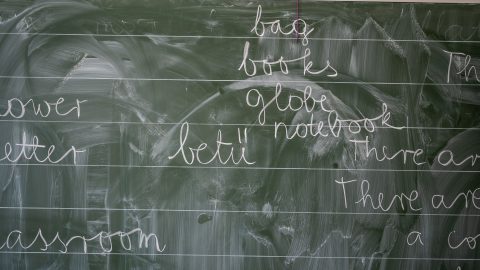 bag
books Th
globe
ower notebook
etter betű There ar
There are
assroom a co